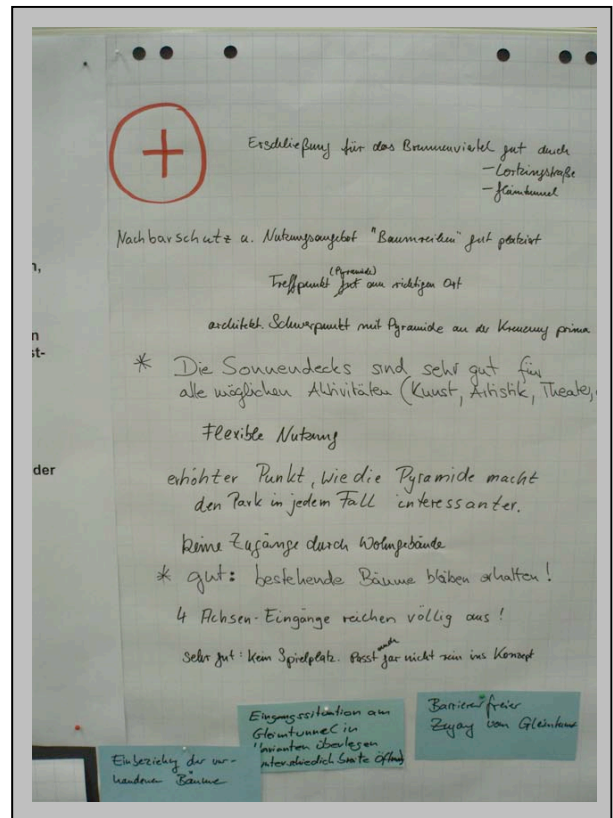 n,
n
st-
der
+
Erschließung für das Brunnenviertel gut durch
- Lortzingstraße
- Gleimtunnel
Nachbarschutz u. Nutzungsangebot "Baumreihen" gut platziert
(Pyramide)
Treffpunkt gut am richtigen Ort
architekt. Schwerpunkt mit Pyramide an der Kreuzung prima
* Die Sonnendecks sind sehr gut für
alle möglichen Aktivitäten (Kunst, Artistik, Theater,
Flexible Nutzung
erhöhter Punkt, wie die Pyramide macht
den Park in jedem Fall interessanter.
keine Zugänge durch Wohngebäude
* gut: bestehende Bäume bleiben erhalten!
4 Achsen-Eingänge reichen völlig aus!
auch
Sehr gut: Kein Spielplatz. Passt gar nicht rein ins Konzept
Eingangssituation am
Gleimtunnel in
Varianten überlegen
unterschiedlich breite
Barrierefreier
Zugang von
Einbeziehung der vor-
handenen Bäume